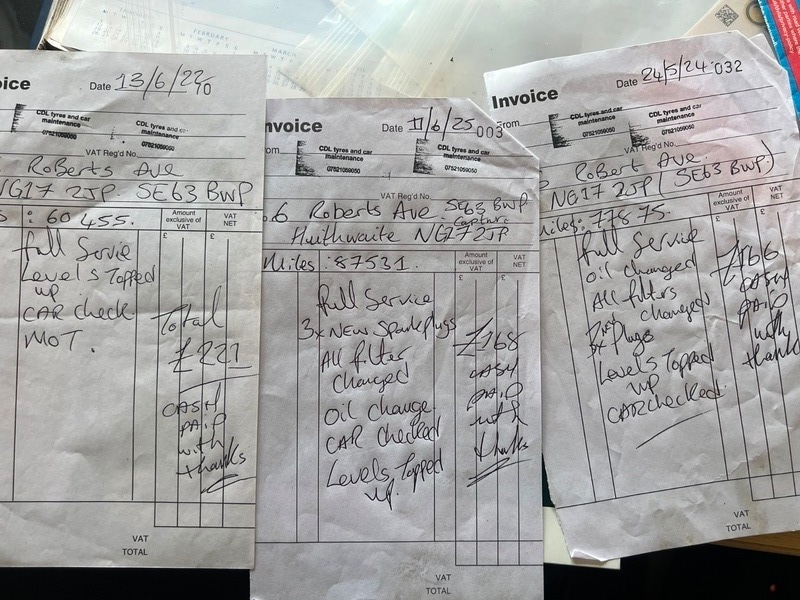 oice
Date 13/6/22
CDL tyres and car
maintenance
07521059050
CDL tyres and car
maintenance
07521059050
VAT Reg'd No.
Roberts Ave
NG17 2JP. SE63 BWP
s : 60 455.
Amount
exclusive of
VAT
VAT
NET
£
£
full Servie
Levels Topped
up
CAR check
MOT.
Total
£221
CASH
PAID
with
thanks
VAT
TOTAL
nvoice
Date 11/6/25 003
om
CDL tyres and car
maintenance
07521059050
CDL tyres and car
maintenance
07521059050
VAT Reg'd No.
o.6 Roberts Ave. SE63 BWP
Captur
Huithwaite NG17 2JP
Miles : 87531.
Amount
exclusive of
VAT
VAT
NET
£
£
full Service
3x New Spark plugs
All filter
changed
Oil change
CAR checked
Levels Topped
up.
£168
CASH
PAID
with
thanks
VAT
TOTAL
Invoice
Date 24/5/24 032
From
CDL tyres and car
maintenance
07521059050
CDL tyres and car
maintenance
07521059050
VAT Reg'd No.
Robert Ave.
NG17 2JP (SE63 BWP)
Miles: 77875.
Amount
exclusive of
VAT
VAT
NET
£
£
full Service
Oil changed
All filters
changed
3x Plugs
Levels Topped
up
CAR checked
£166
CASH
PAID
with
thanks
VAT
TOTAL